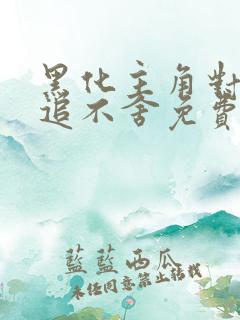 黑化主角對
追不舍免費
藍藍西瓜
未經同意禁止轉載